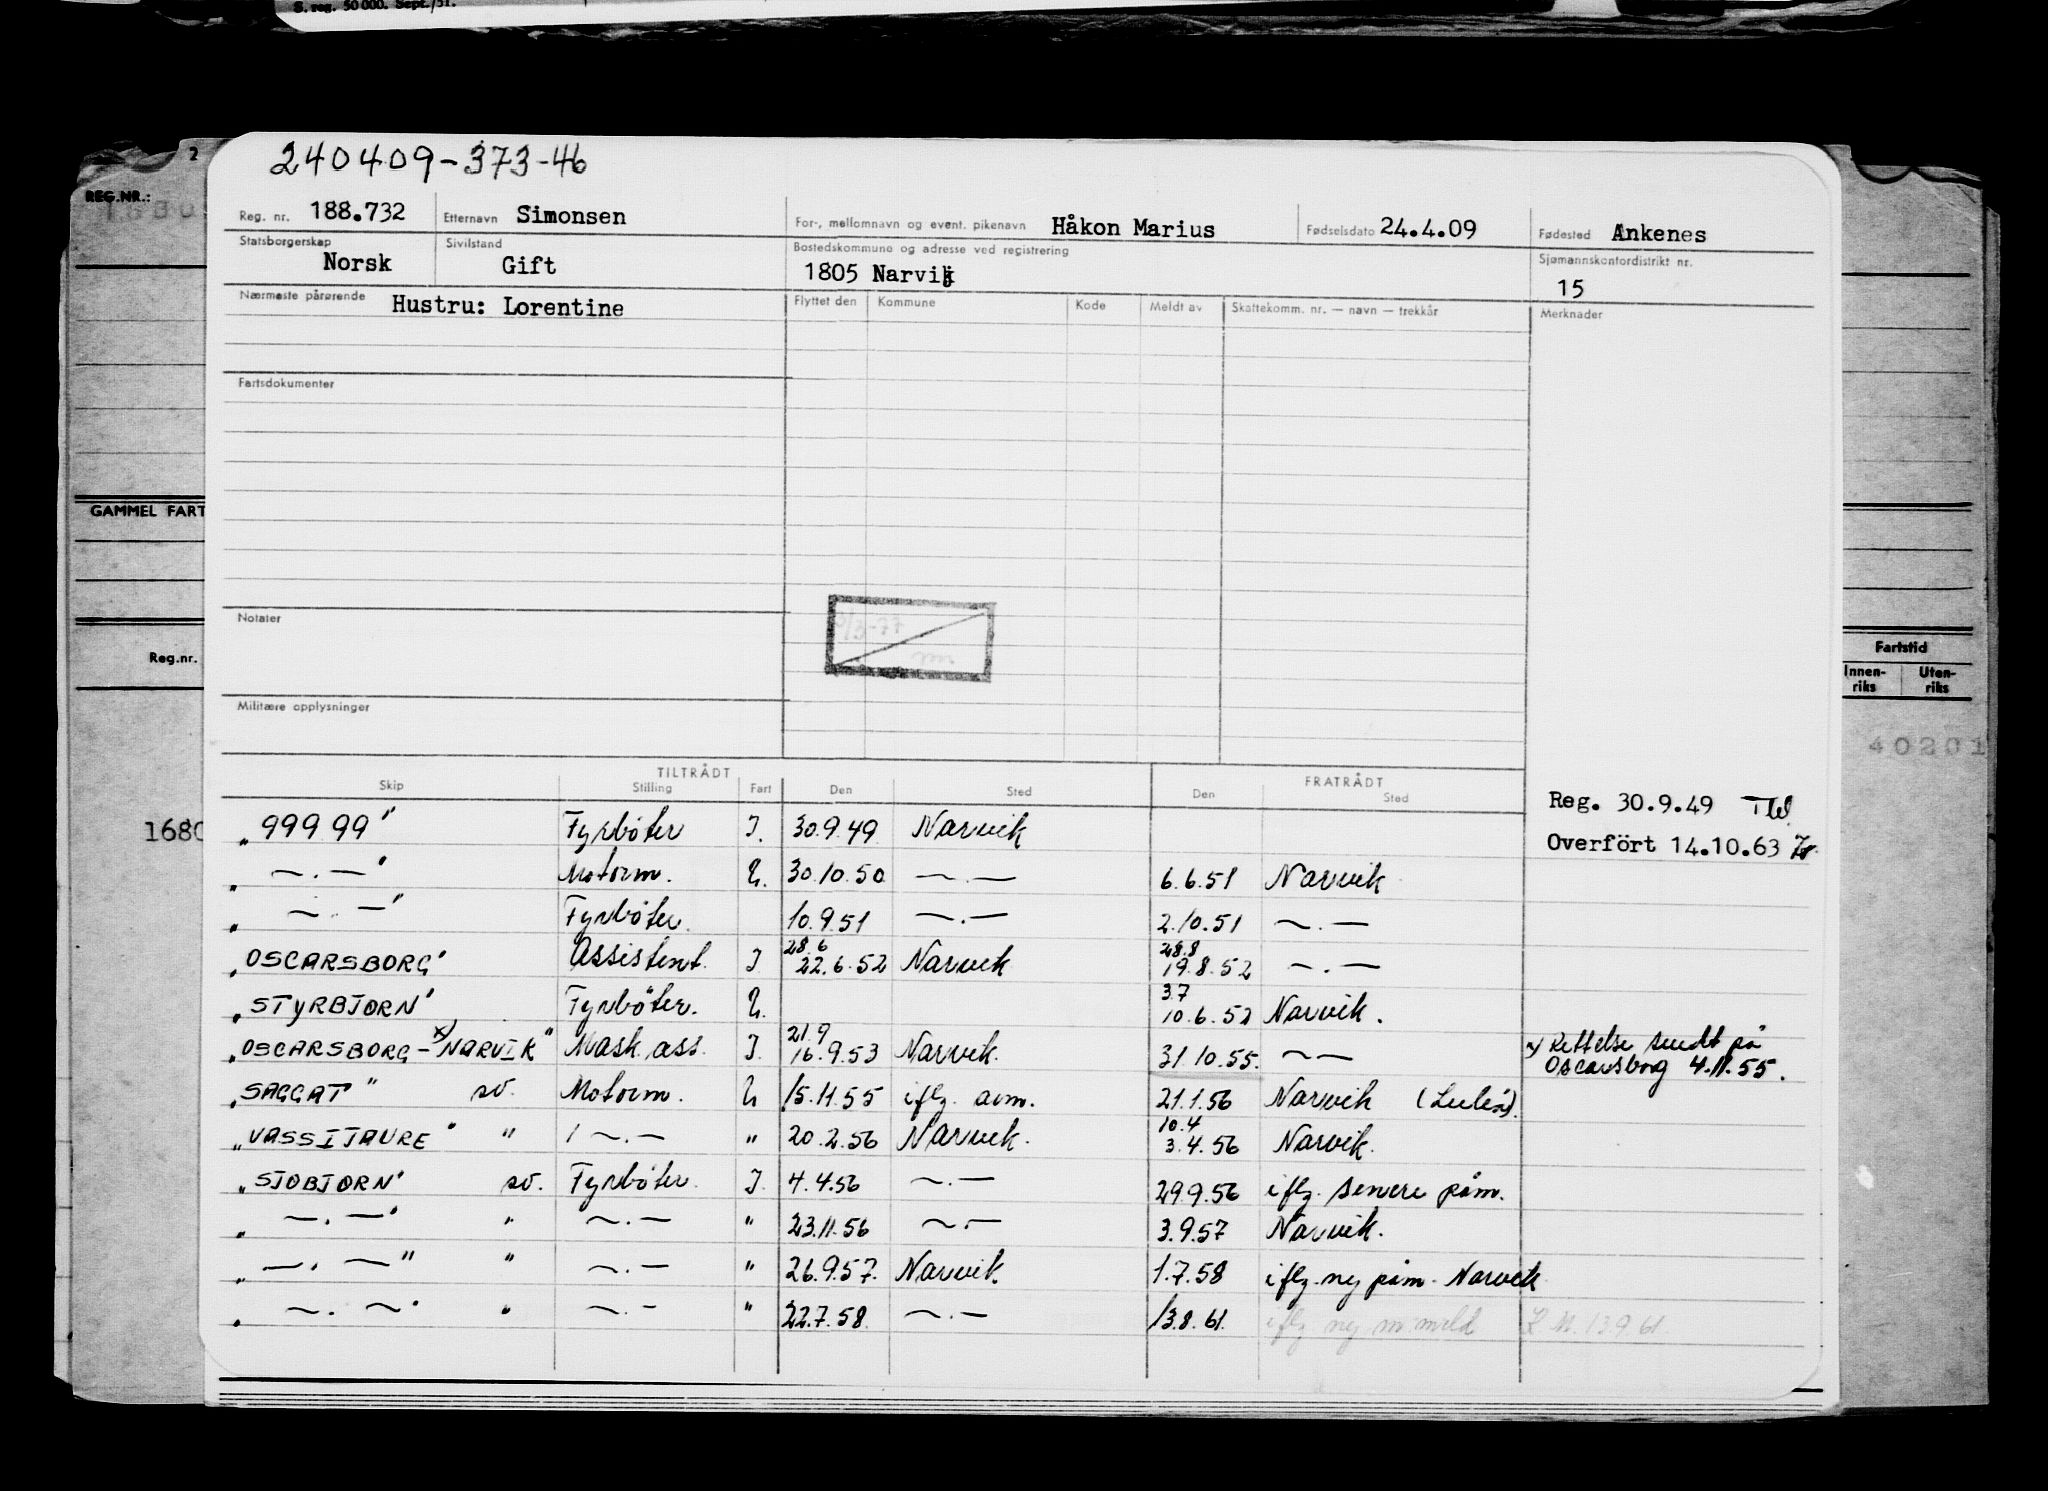 S. reg. 50 000. Sept./51.
2
240409-373-46
REG.NR.:
Reg. nr. 188.732 Etternavn Simonsen For-, mellomnavn og event. pikenavn Håkon Marius Fødselsdato 24.4.09 Fødested Ankenes
Statsborgerskap Norsk Sivilstand Gift Bostedskommune og adresse ved registrering 1805 Narvik Sjømannskontordistrikt nr. 15
Nærmeste pårørende Hustru: Lorentine Flyttet den Kommune Kode Meldt av Skattekomm. nr. — navn — trekkår Merknader
Fartsdokumenter
GAMMEL FART
Notater
Reg.nr.
Fartstid
Innen-riks Uten-riks
Militære opplysninger
40201
TILTRÅDT FRATRÅDT
Skip Stilling Fart Den Sted Den Sted
Reg. 30.9.49
1680
„999 99" Fyrbøter J. 30.9.49 Narvik
Overfört 14.10.63
„ —.— " Motorm. U. 30.10.50 —.— 6.6.51 Narvik
„ —.— " Fyrbøter. 10.9.51 —.— 2.10.51 —.—
„OSCARSBORG" Assistent. J 28.6 22.6.52 Narvik 28.8 19.8.52 —.—
„STYRBJORN" Fyrbøter. U. 3.7 10.6.52 Narvik.
„OSCARSBORG - x) NARVIK" Mask. ass. J. 21.9 16.9.53 Narvik. 31.10.55. —— x) Rettelse sendt på
Oscarsborg 4.11.55.
„SAGGAT" sv. Motorm. U 15.11.55 iflg. avm. 21.1.56 Narvik (Luleå).
„VASSIJAURE" " —.— " 20.2.56 Narvik. 10.4 3.4.56 Narvik.
„SJOBJORN" sv. Fyrbøter. J. 4.4.56 —.— 29.9.56 iflg. senere påm.
„ —.— " " —.— " 23.11.56 —.— 3.9.57 Narvik.
„ —.— " " —.— " 26.9.57. Narvik. 1.7.58 iflg. ny påm. Narvik
„ —.— " " —.— " 22.7.58. —.— 13.8.61. iflg ny m. meld 13.9.61